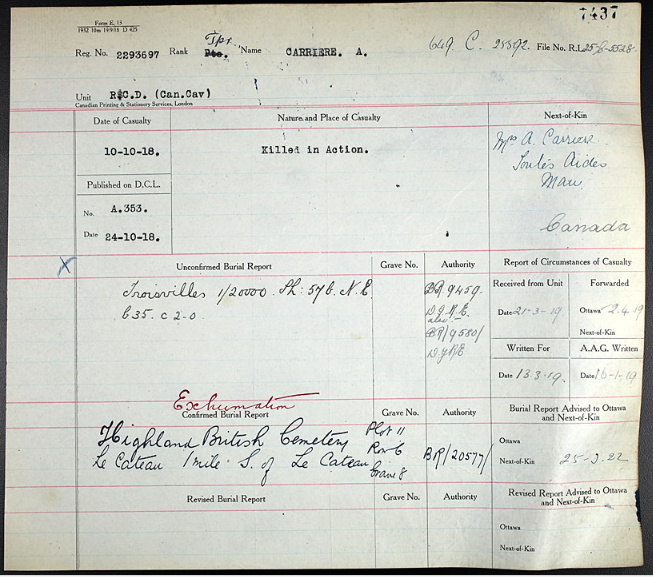 7437
Form E. 13
Reg. No. 2293697 Rank Tpr. Pte. Name CARRIERE. A. 649. C. 25392. File No. R.L.
Unit R.C.D. (Can.Cav)
Canadian Printing & Stationery Services, London
Date of Casualty
Nature and Place of Casualty
Next-of-Kin
10-10-18.
Killed in Action.
Mrs A. Carriere
Toutes Aides
Man
Canada
Published on D.C.L.
No. A.353.
Date 24-10-18.
X
Unconfirmed Burial Report
Grave No.
Authority
Report of Circumstances of Casualty
Troisvilles 1/20000 Sh: 57b. N.E.
b35. c 2-0
BR 9459.
BR/9580/
Received from Unit
Forwarded
Date 21-3-19
Ottawa 2.4.19
Next-of-Kin
Written For
A.A.G. Written
Date 13.3.19.
Date 16-1-19
Exhumation
Confirmed Burial Report
Grave No.
Authority
Burial Report Advised to Ottawa and Next-of-Kin
Highland British Cemetery
Le Cateau 1 mile S. of Le Cateau
Plot 11
Row C
Grave 8
BR/20577/
Ottawa
Next-of-Kin 25-3-22
Revised Burial Report
Grave No.
Authority
Revised Report Advised to Ottawa and Next-of-Kin
Ottawa
Next-of-Kin